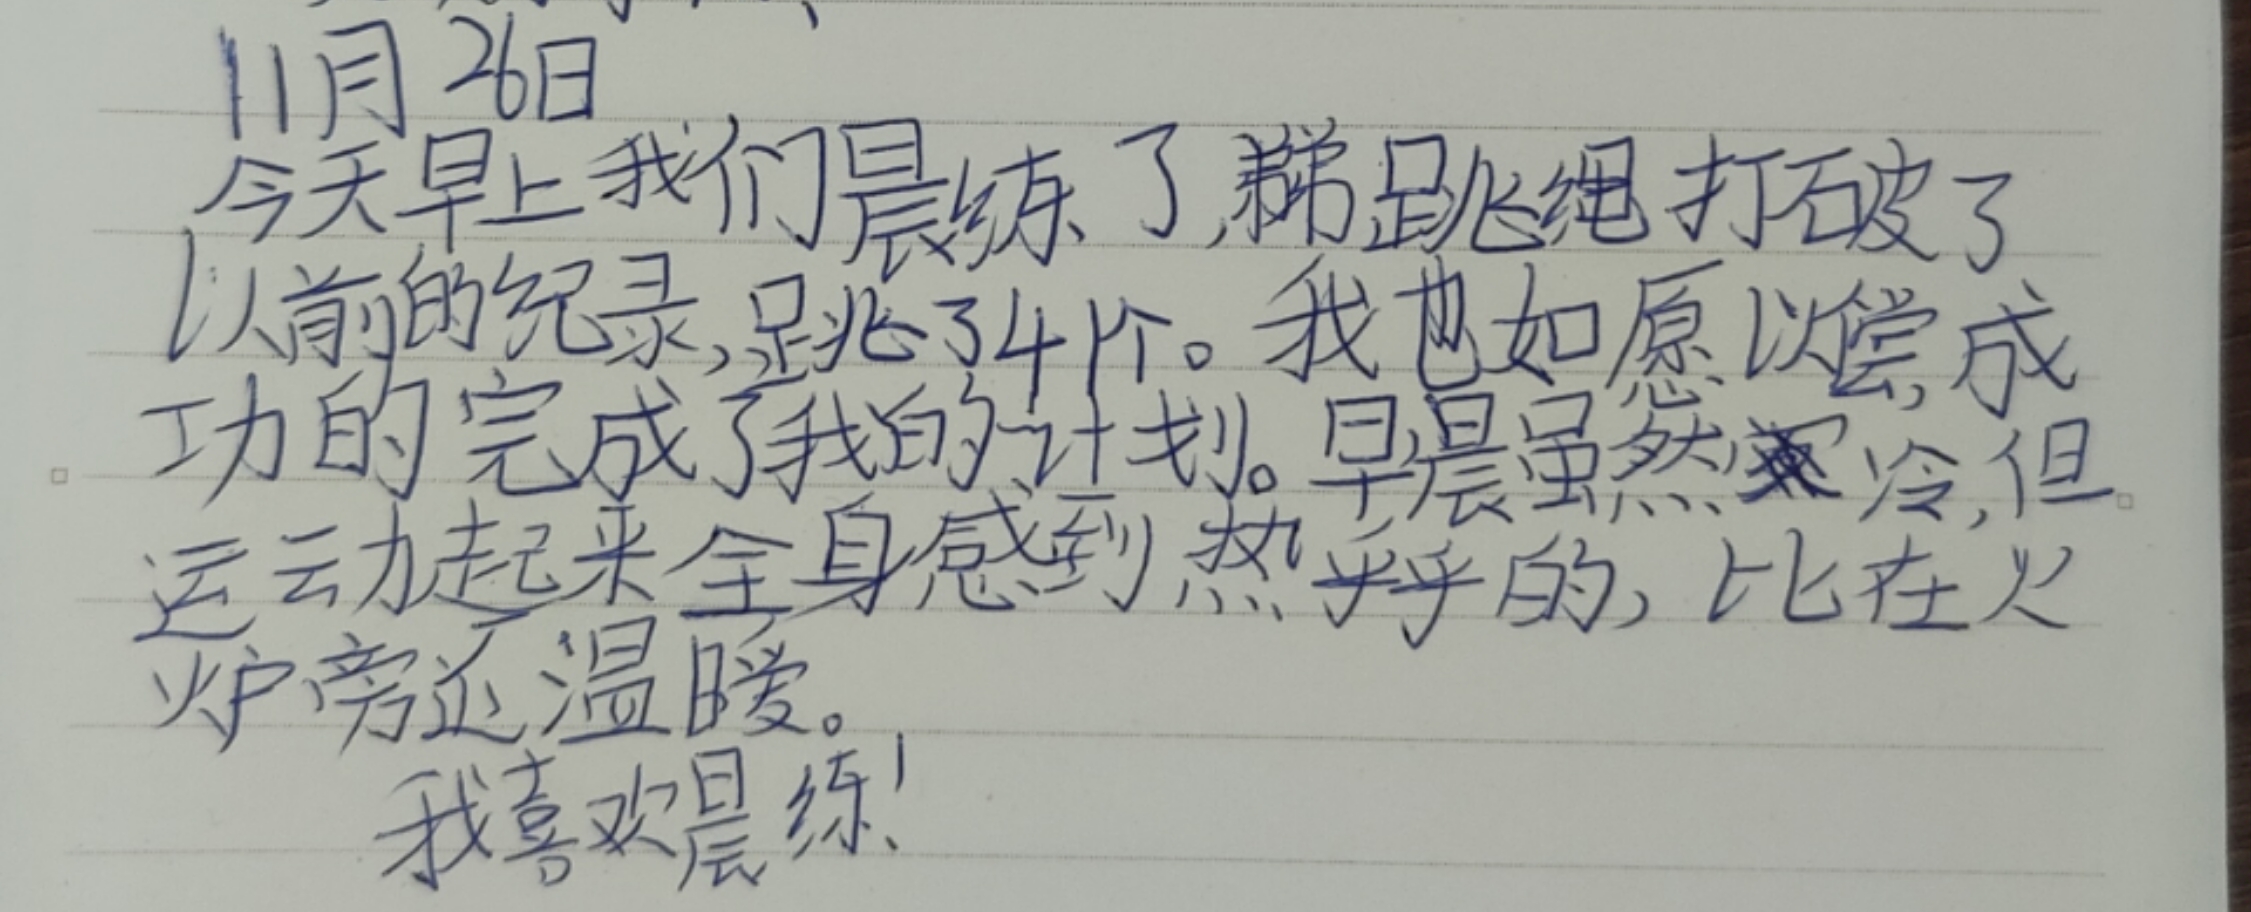 11月26日
今天早上我们晨练了,弟跳绳打破了
以前的纪录,跳了41个。我也如愿以偿,成
功的完成了我的计划。早晨虽然冷,但
运动起来全身感到热乎乎的,比在火
炉旁还温暖。
我喜欢晨练!